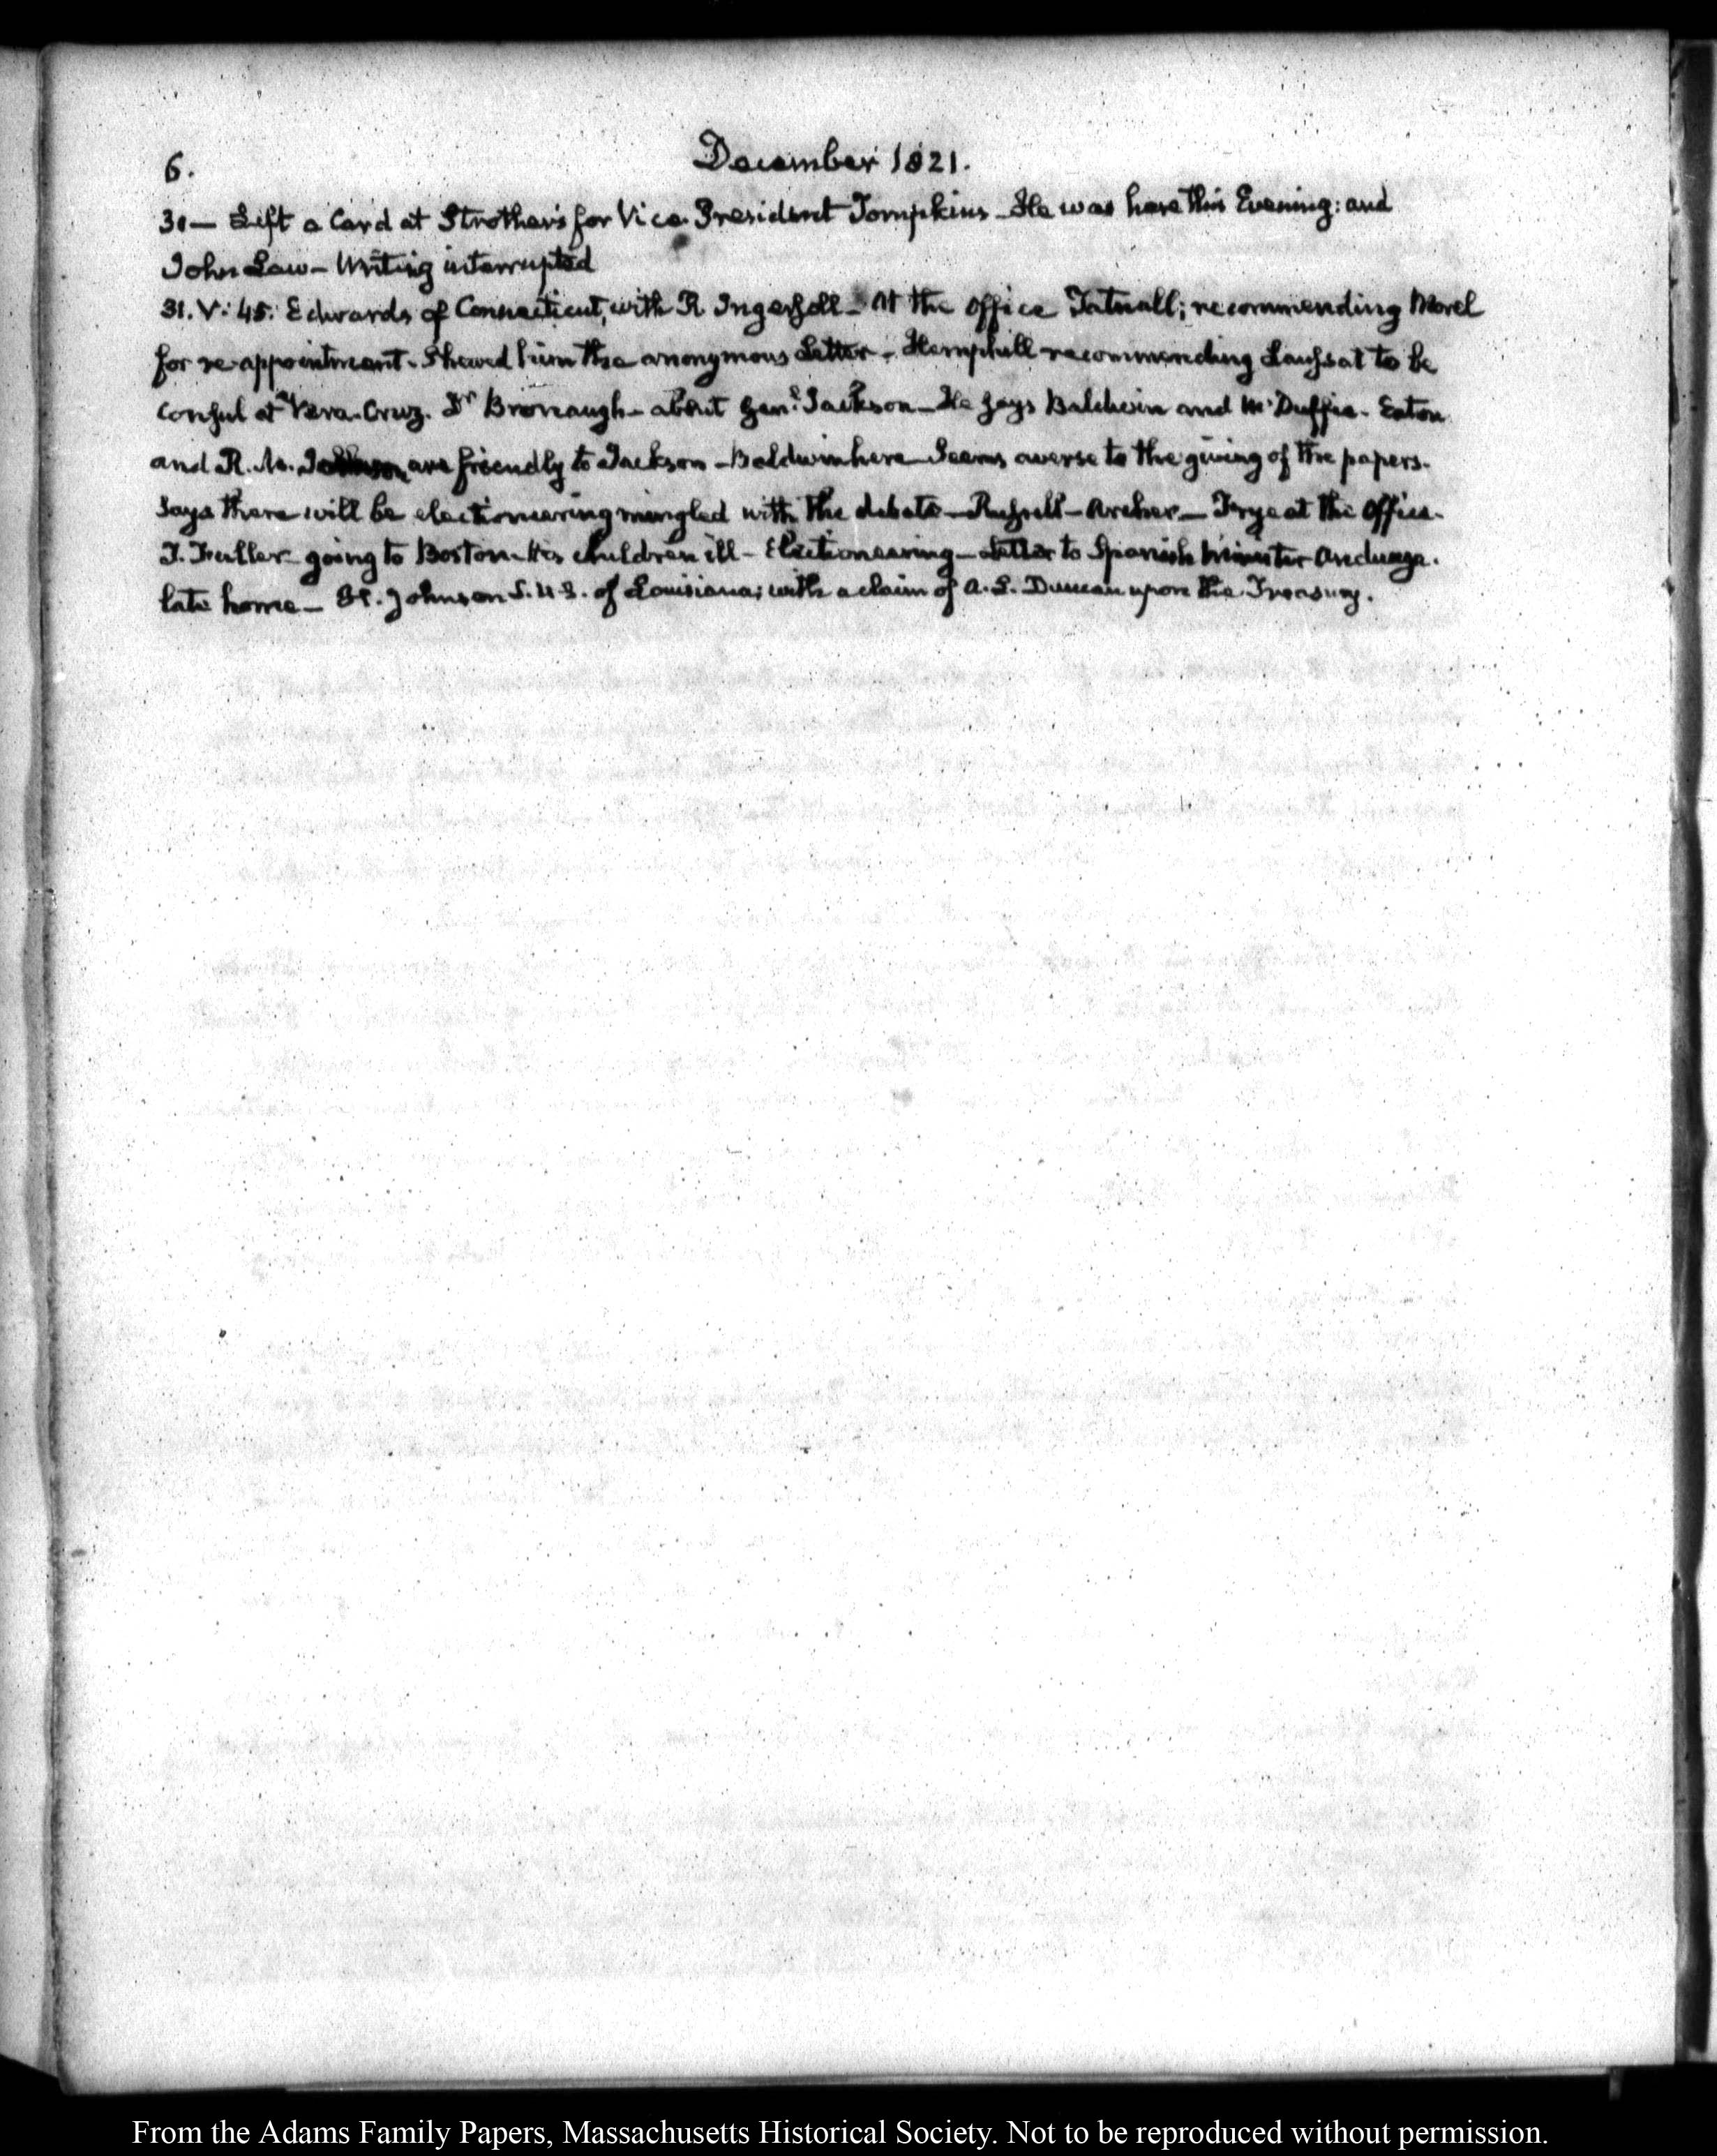 6.
December 1821.
30— Left a Card at Strother's for Vice-President Tompkins—He was here this Evening: and
John Law—Writing interrupted
31. V: 45: Edwards of Connecticut, with R Ingersoll—At the Office Tatnall; recommending Morel
for re-appointment. Shewed him the anonymous Letter—Hemphill recommending Laussat to be
Consul at Vera-Cruz. Dr Bronaugh—about Genl. Jackson—He says Baldwin and McDuffie. Eaton
and R. M. Johnson are friendly to Jackson—Baldwin here—Seems averse to the giving of the papers.
Says there will be electioneering mingled with the debate—Russell—Archer—Frye at the Office.
T. Fuller going to Boston—His children ill—Electioneering—Letter to Spanish Minister Anduaga.
late home— Johnson S.U.S. of Louisiana; with a claim of A. L. Duncan upon the Treasury.
From the Adams Family Papers, Massachusetts Historical Society. Not to be reproduced without permission.